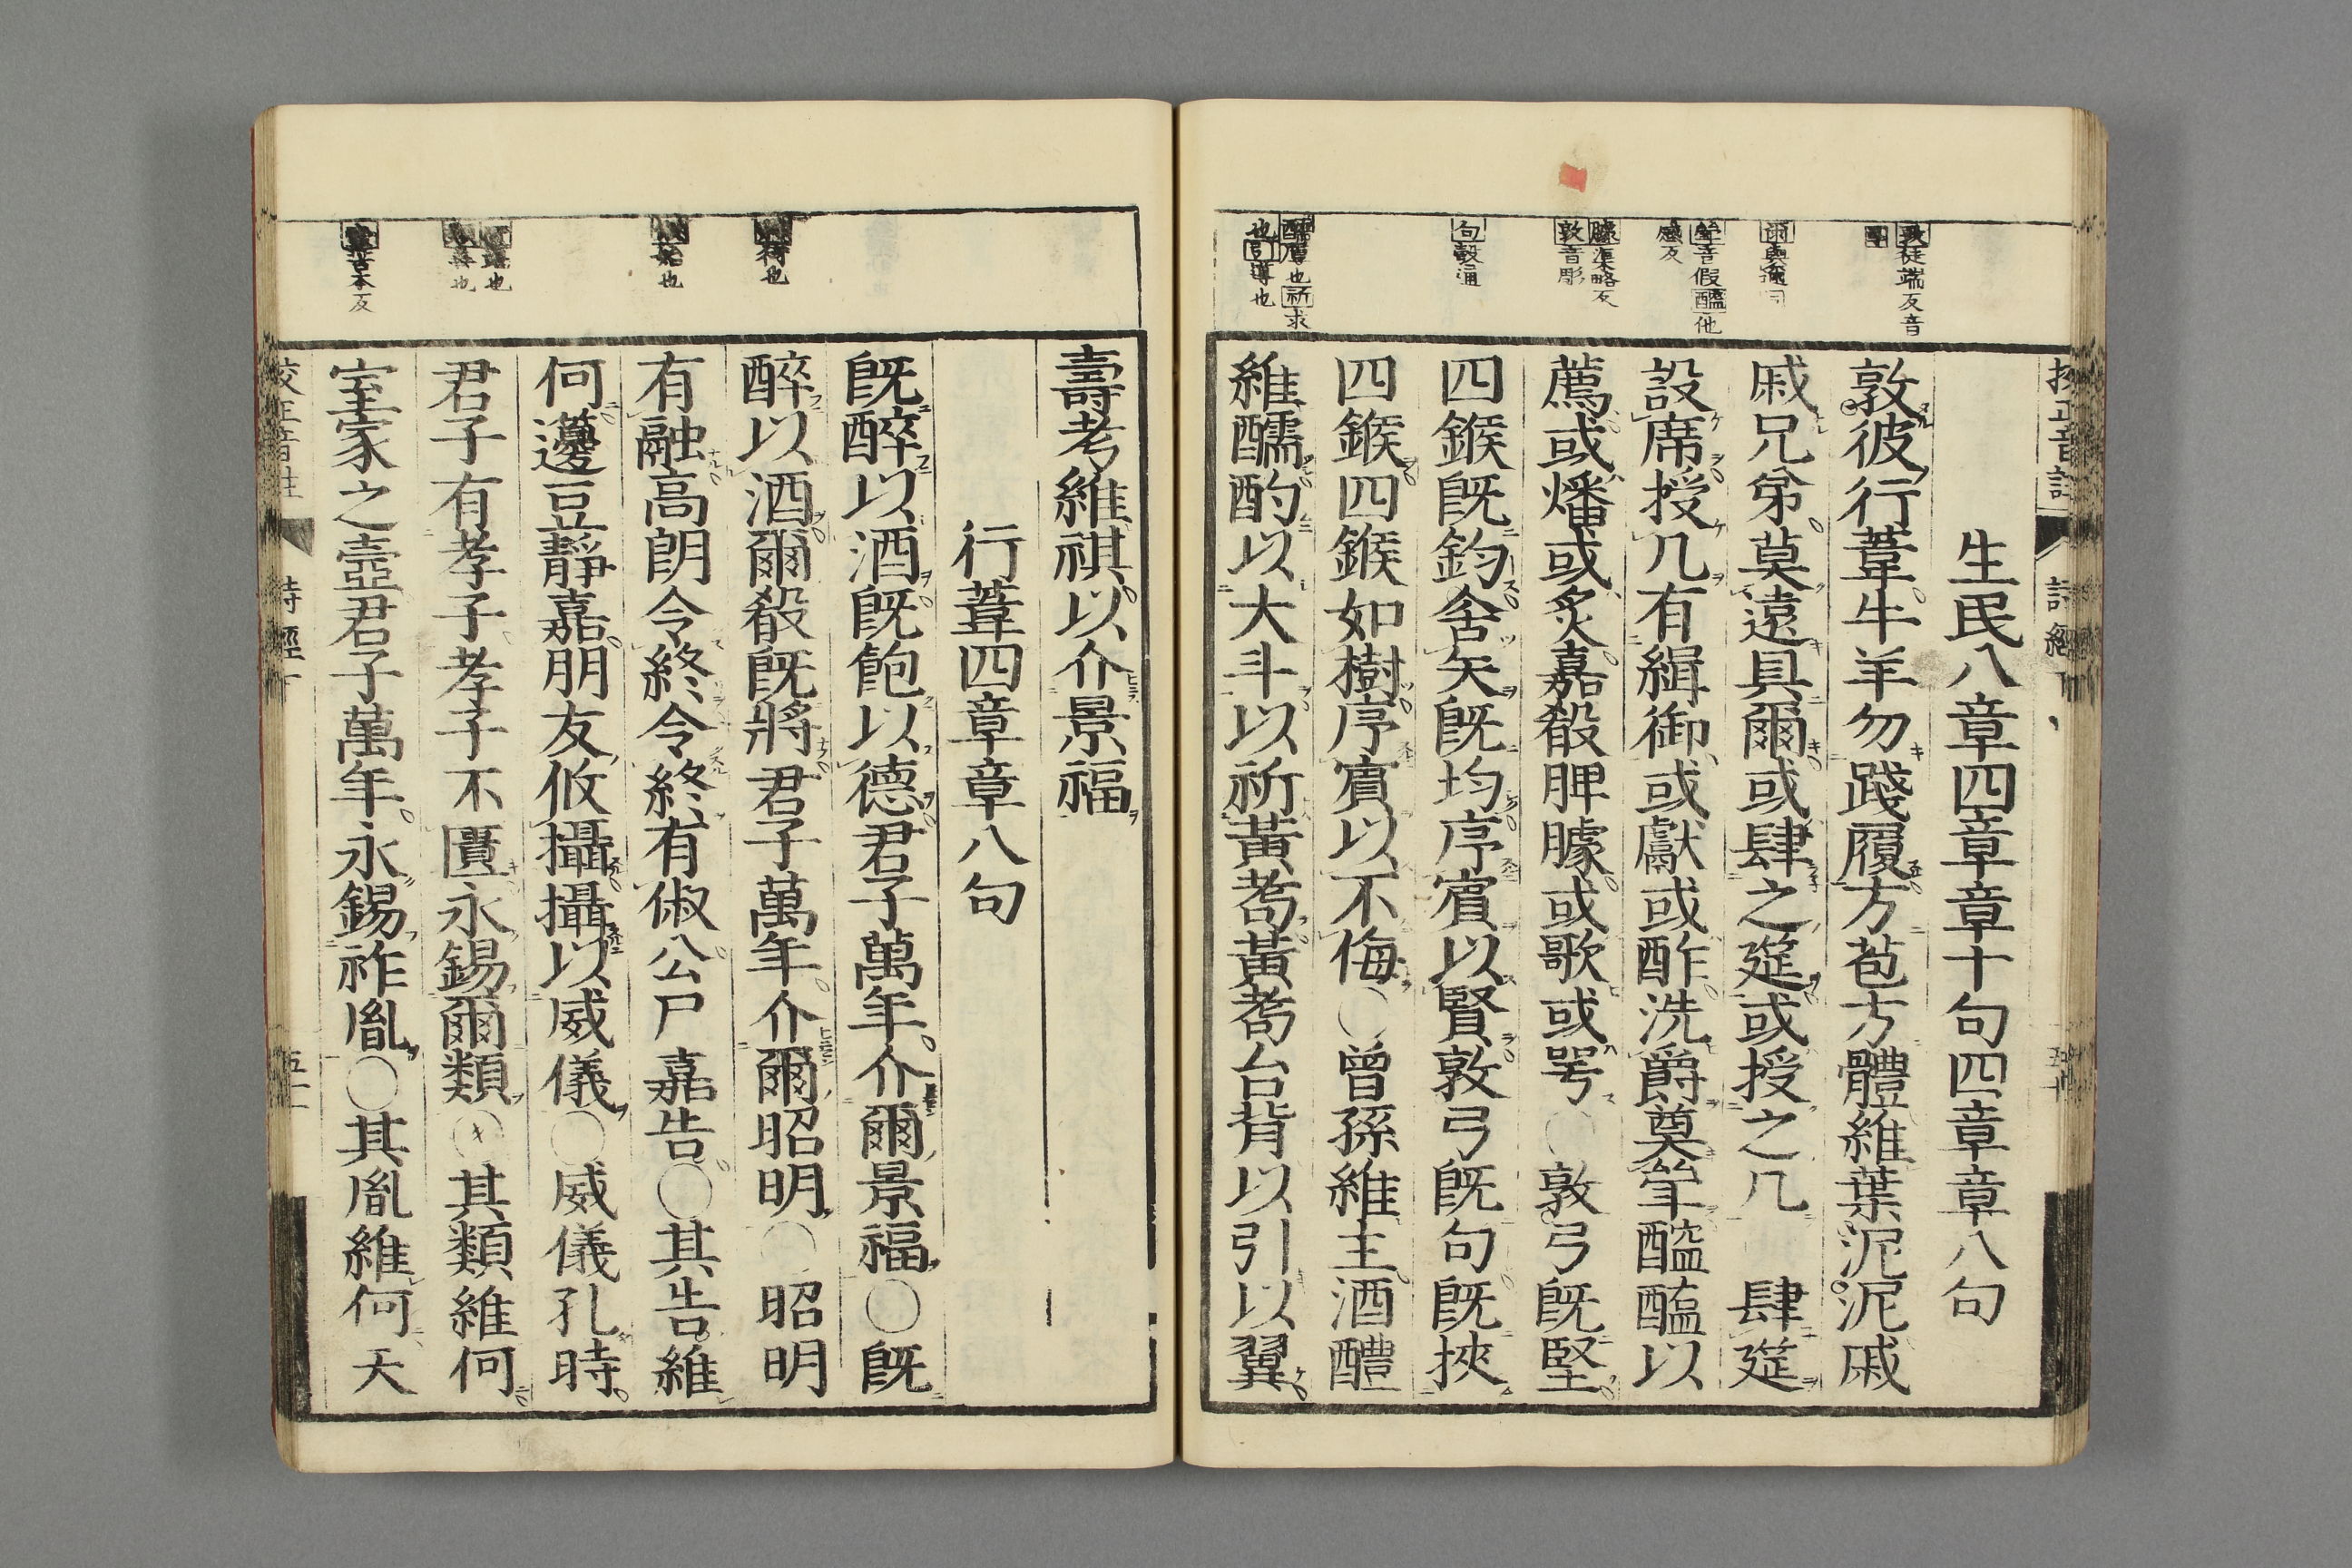 生民八章四章章十句四章章八句
敦彼行葦牛羊勿踐履方苞方體維葉泥泥戚
戚兄弟莫遠具爾或肆之筵或授之几 肆筵
設席授几有緝御或獻或酢洗爵奠斝醓醢以
薦或燔或炙嘉殽脾臄或歌或咢○敦弓既堅
四鍭既鈞舍矢既均序賓以賢敦弓既句既挾
四鍭四鍭如樹序賓以不侮○曾孫維主酒醴
維醹酌以大斗以祈黃耇黃耇台背以引以翼
敦徒端反音團
斝音假醓他感反
臄渠略反
敦音彫
句彀通
醹厚也祈求也引導也
壽考維祺以介景福
行葦四章章八句
既醉以酒既飽以德君子萬年介爾景福○既
醉以酒爾殽既將君子萬年介爾昭明○昭明
有融高朗令終令終有俶公尸嘉告○其告維
何籩豆靜嘉朋友攸攝攝以威儀○威儀孔時
君子有孝子孝子不匱永錫爾類○其類維何
室家之壼君子萬年永錫祚胤○其胤維何天
壼苦本反
詩經下